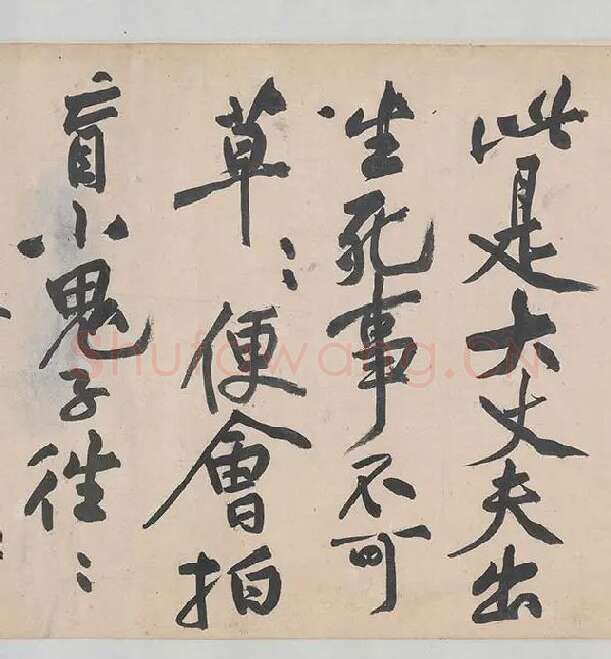 此是大丈夫出
生死事不可
草〻便會拍
盲小鬼子往〻
Shufawang.CN